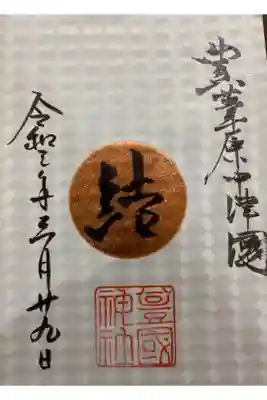 豊葦原中津國
結
豊國神社
令和三年三月廿九日